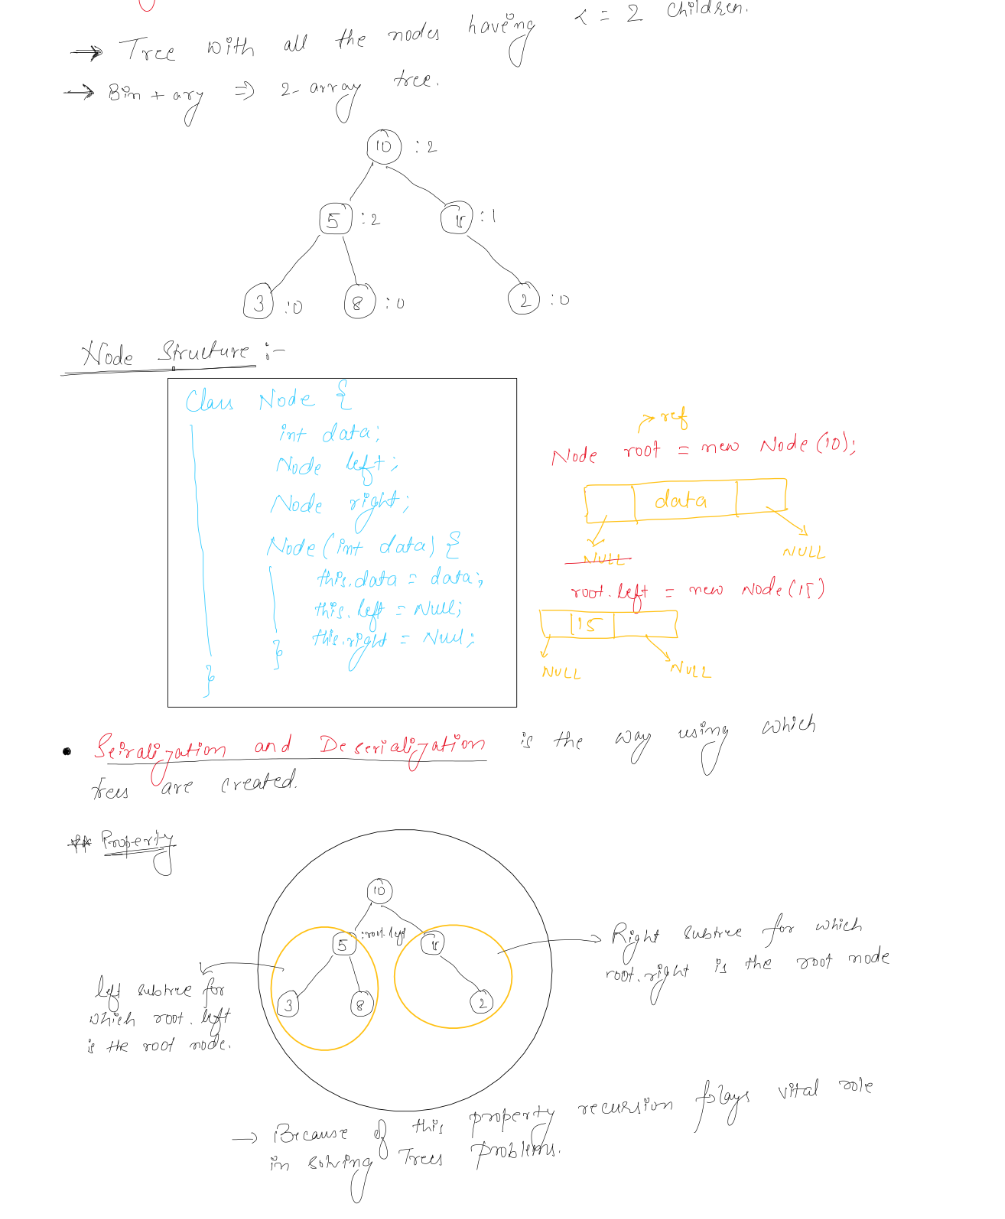 → Tree with all the nodes having <= 2 children.
→ Bin + ary ⇒ 2-array tree.
10 :2
5 :2 15 :1
3 :0 8 :0 2 :0
Node Structure :-
Class Node {
int data;
Node left;
Node right;
Node (int data) {
this.data = data;
this.left = Null;
this.right = Null;
}
}
→ ref
Node root = new Node (10);
data
NULL NULL
root.left = new Node (15)
15
NULL NULL
• Seiralization and Deserialization is the way using which
trees are created.
** Property
10
5 :root.left 15
3 8 2
left subtree for
which root.left
is the root node.
Right subtree for which
root.right is the root node
→ Because of this property recursion plays vital role
in solving Trees problems.